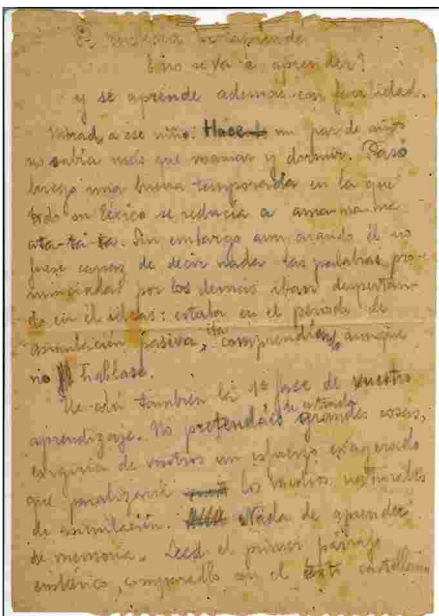 El euskera se aprende
Eso se va a aprender!
y se aprende además con facilidad.
Mirad a ese niño. Hace un par de años
no sabía más que mamar y dormir. Pasó
luego una buena temporada en la que
todo su léxico se reducía a ama-ma-me
ata-ta-ta. Sin embargo aun cuando él no
fuese capaz de decir nada las palabras pro-
nunciadas por los demás iban despertan-
do en él ideas: estaba en el período de
asimilación pasiva, iba comprendiendo, aunque
no hablase.
He ahí también la 1ª fase de vuestro
aprendizaje. No pretendáis de entrada grandes cosas,
exigiría de vosotros un esfuerzo exagerado
que paralizaría los medios naturales
de asimilación. Nada de aprender
de memoria. Leed el primer párrafo
eusk­érico, comparadlo con el texto castellano